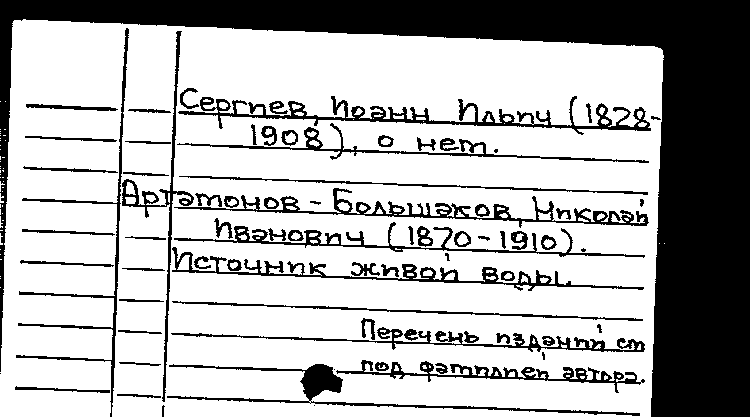 Сергиев, Иоанн Ильич (1828-
1908), о нем.
Артамонов-Большаков, Николай
Иванович (1870-1910).
Источник живой воды.
Перечень изданий см
под фамилией автора.